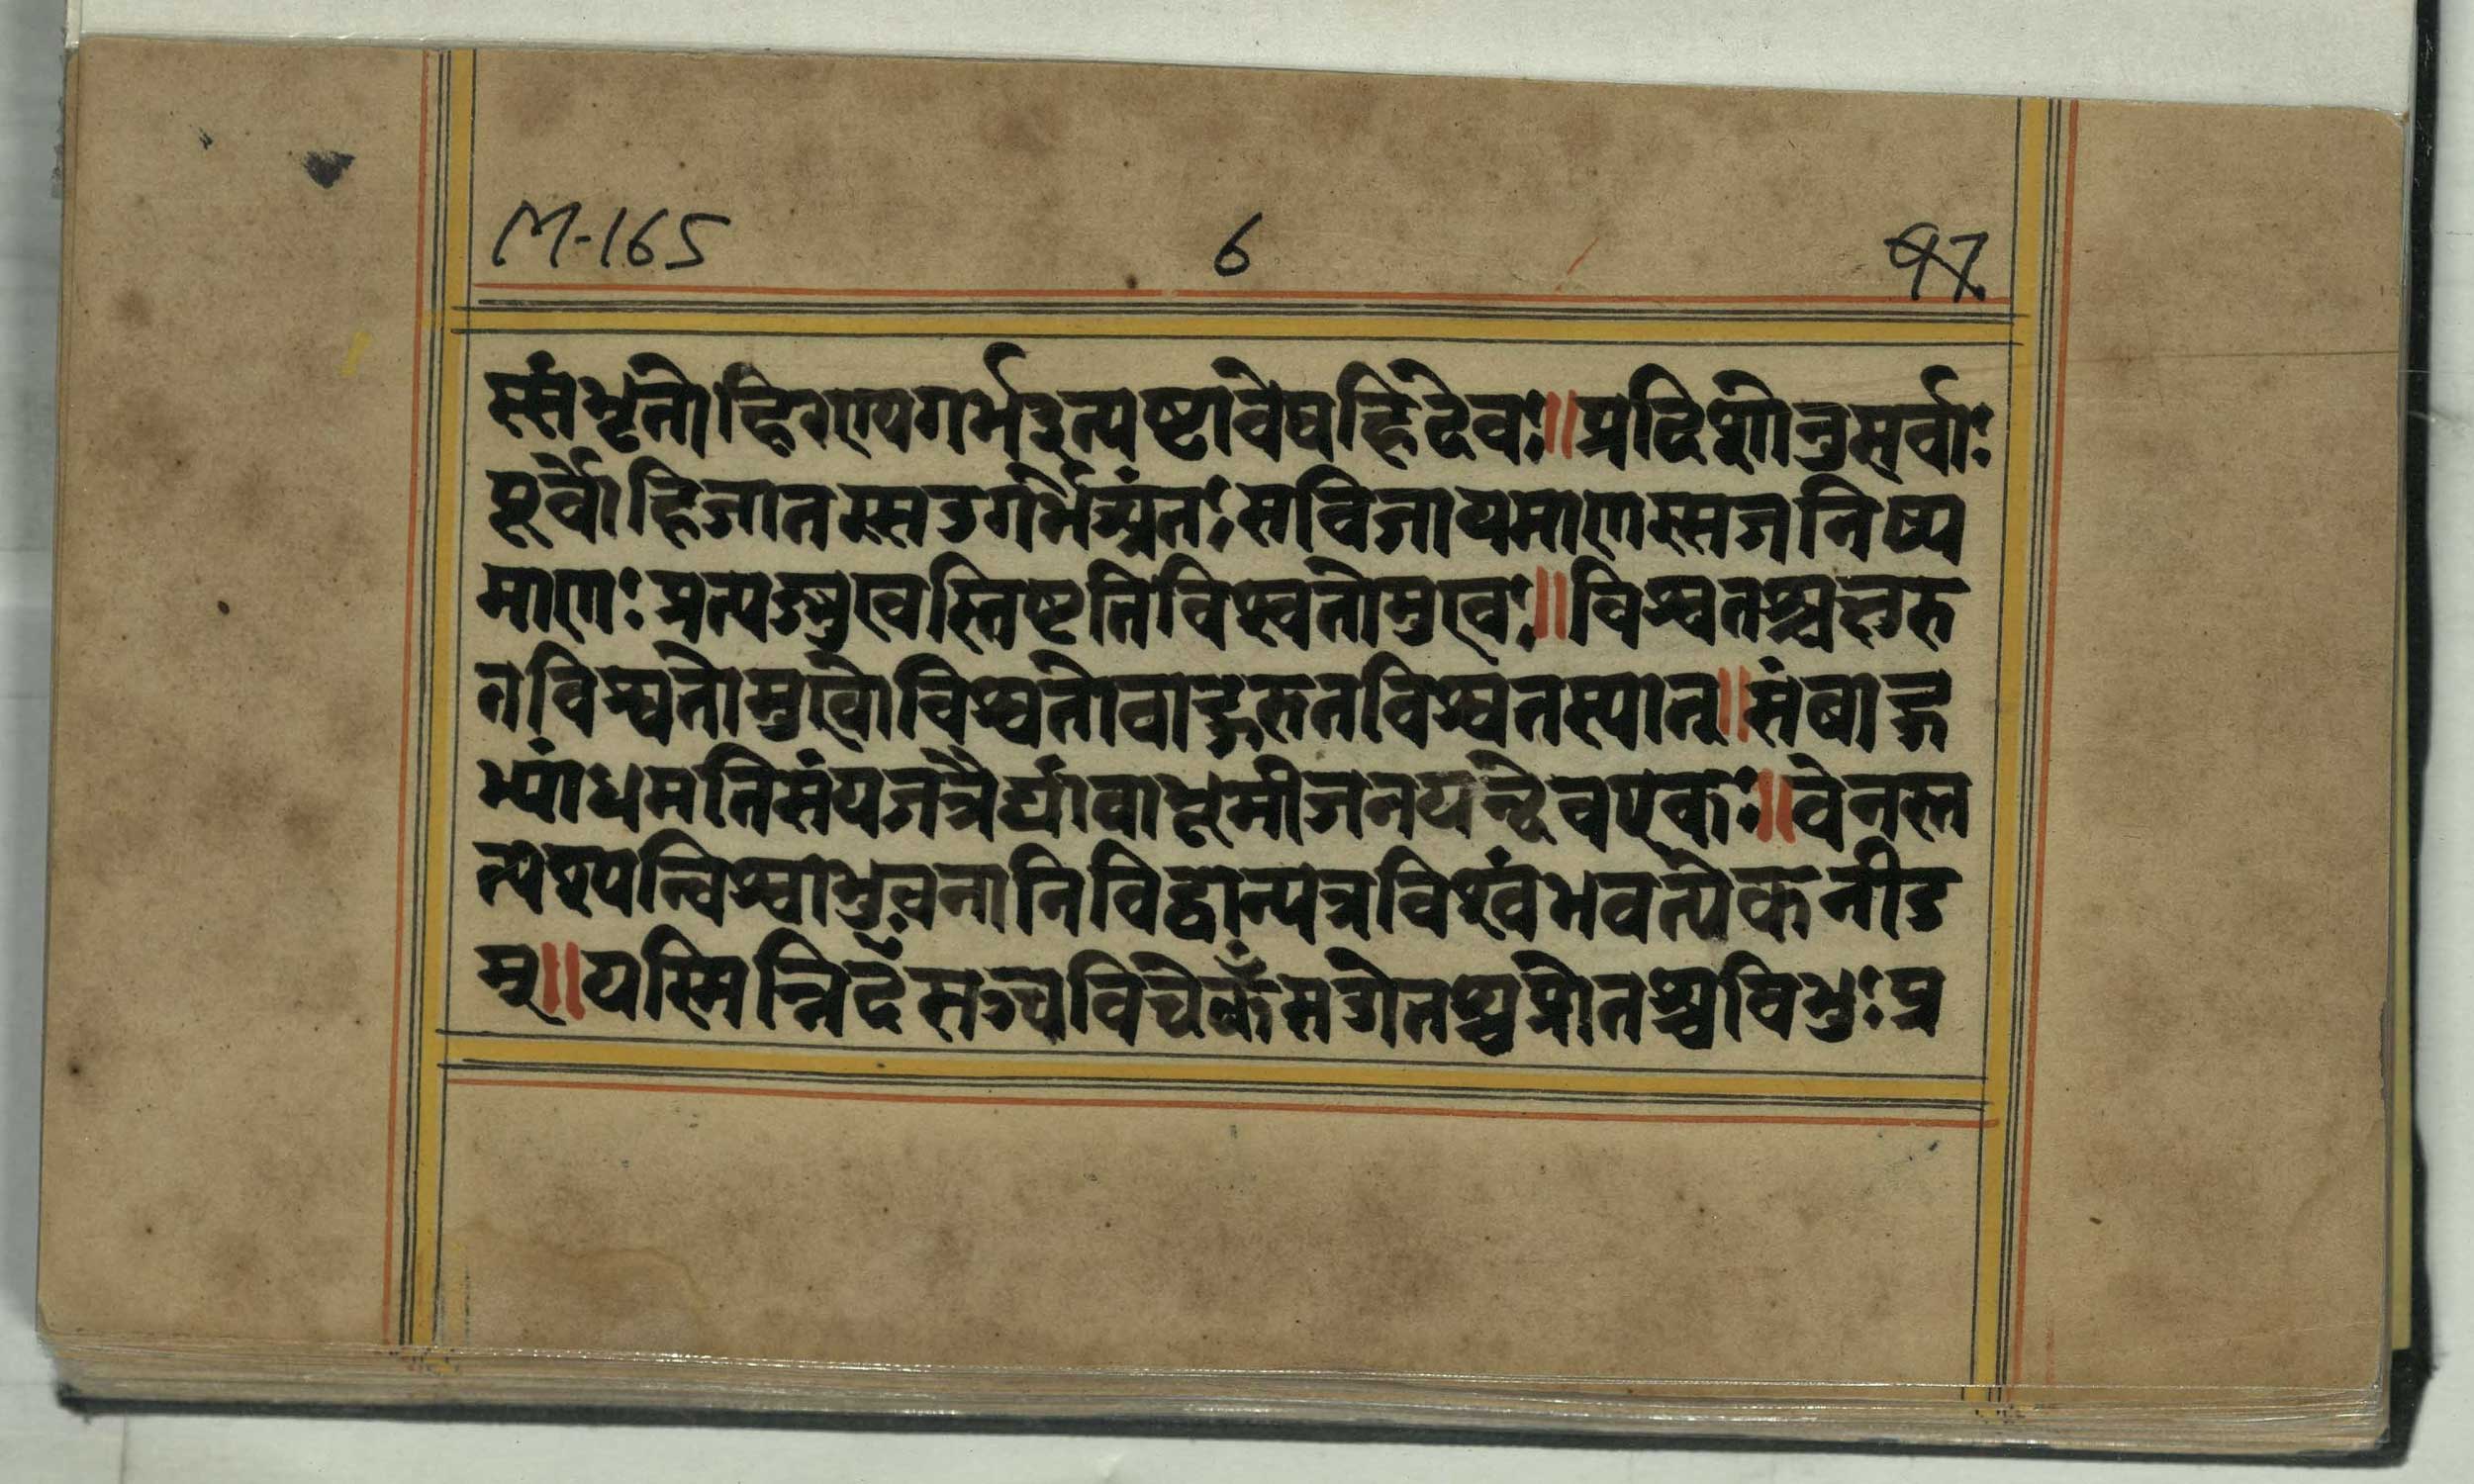 M-165 6 97
स्संभृतो हिरण्यगर्भइत्यष्टावेषहिदेवः॥प्रदिशोनुसर्वाः
पूर्वो हिजातस्सउगर्भेअंतः सविजायमाणस्सजनिष्य
माणः प्रत्यङ्मुखस्तिष्टतिविश्वतोमुखः॥विश्वतश्चक्षुरु
तविश्वतोमुखोविश्वतोबाहुरुतविश्वतस्पात्॥संबाहु
भ्यांधमतिसंयजत्रैर्द्यावाभूमीजनयन्देवएकः॥वेनस्त
त्पश्यन्विश्वाभुवनानिविद्वान्यत्रविश्वंभवत्येकनीड
म्॥यस्मिन्निदँसञ्चविचैकँसओतश्चप्रोतश्चविभुः प्र